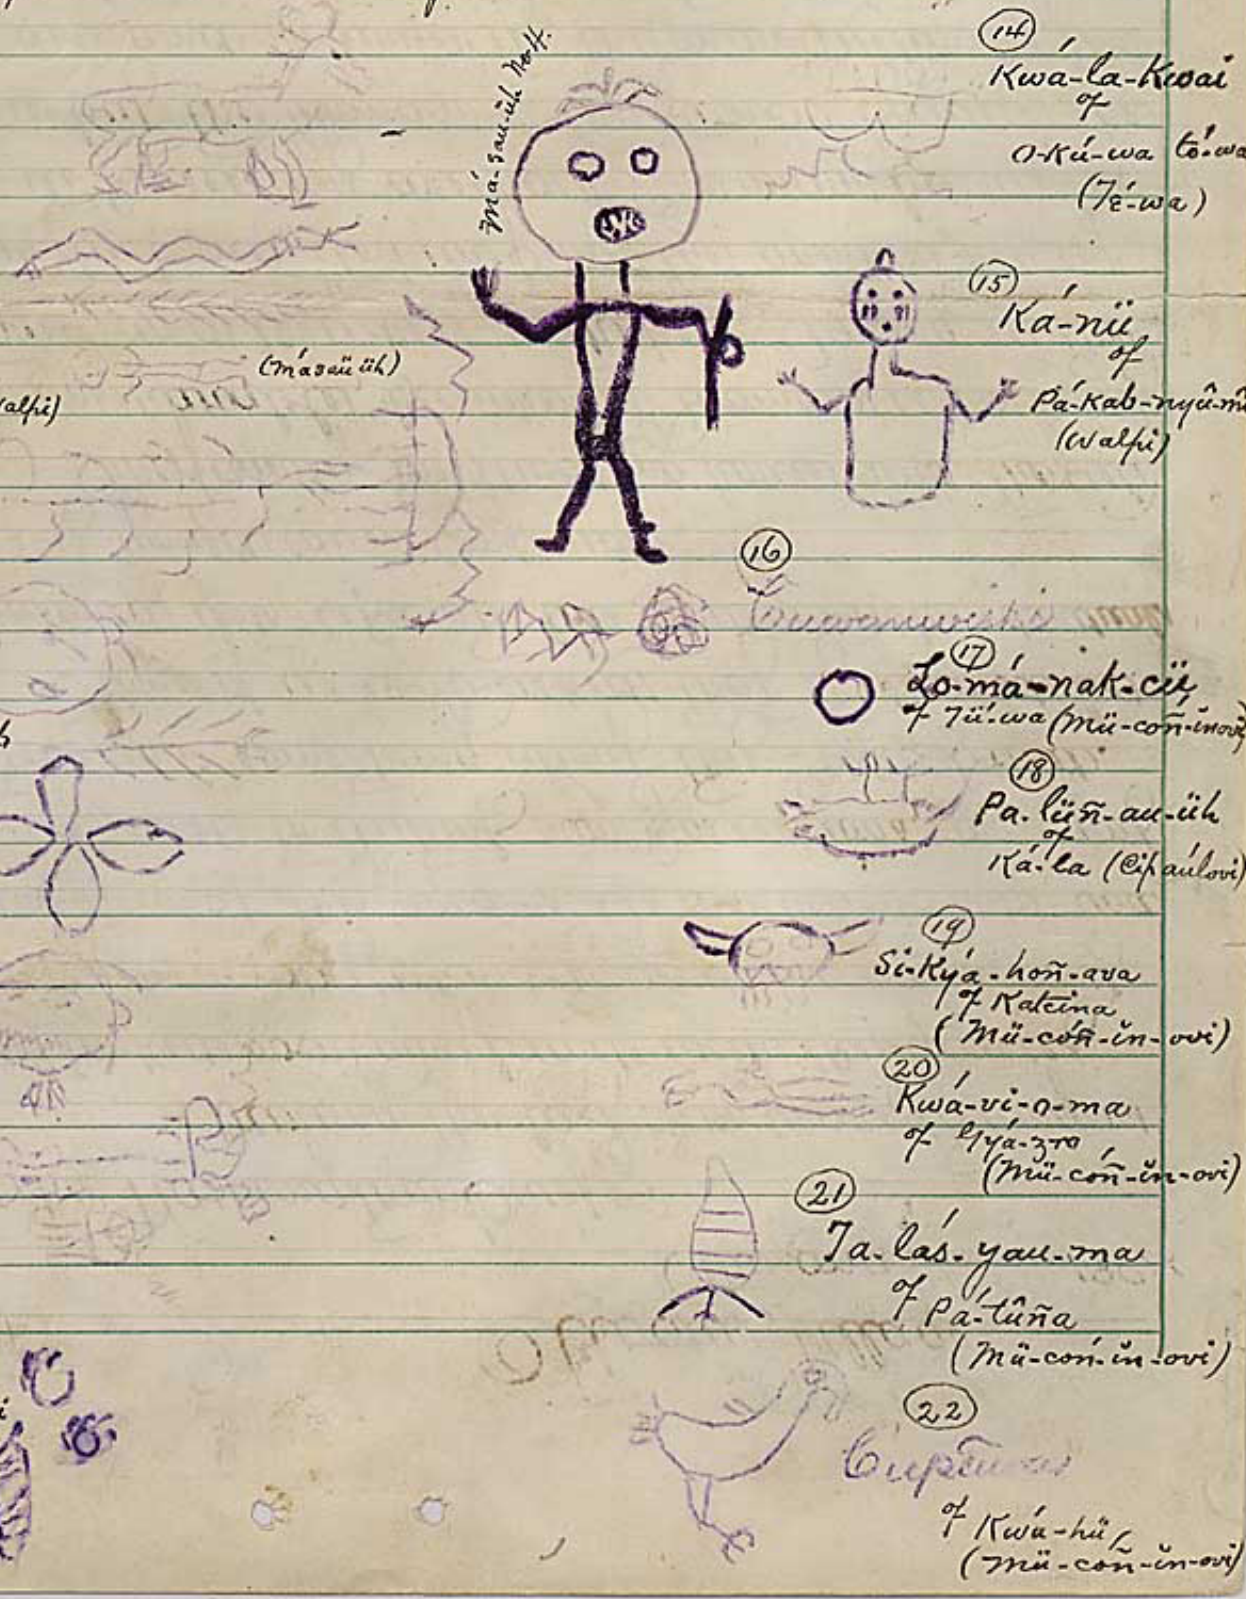 má-sau-üh
(14)
Kwá-la-Kwai
of
O-Kú-wa tó-wa
(Té-wa)
(15)
Ká-nü
of
Pá-Kab-nyû-m
(Walpi)
(másauüh)
alpi)
(16)
(17)
Lo-má-nak-cü
of Tü-wa (Mü-coñ-inovi)
(18)
Pa-lüñ-au-üh
of
Ká-la (Cipaúlovi)
(19)
Si-Kyá-hoñ-ava
of Katcina
(Mü-cóñ-ĭn-ovi)
(20)
Kwá-vi-o-ma
of Gyá-zro
(Mü-cóñ-ĭn-ovi)
(21)
Ta-lás-yau-ma
of Pá-tûña
(Mü-cóñ-ĭn-ovi)
(22)
of Kwá-hü,
(Mü-coñ-ĭn-ovi)